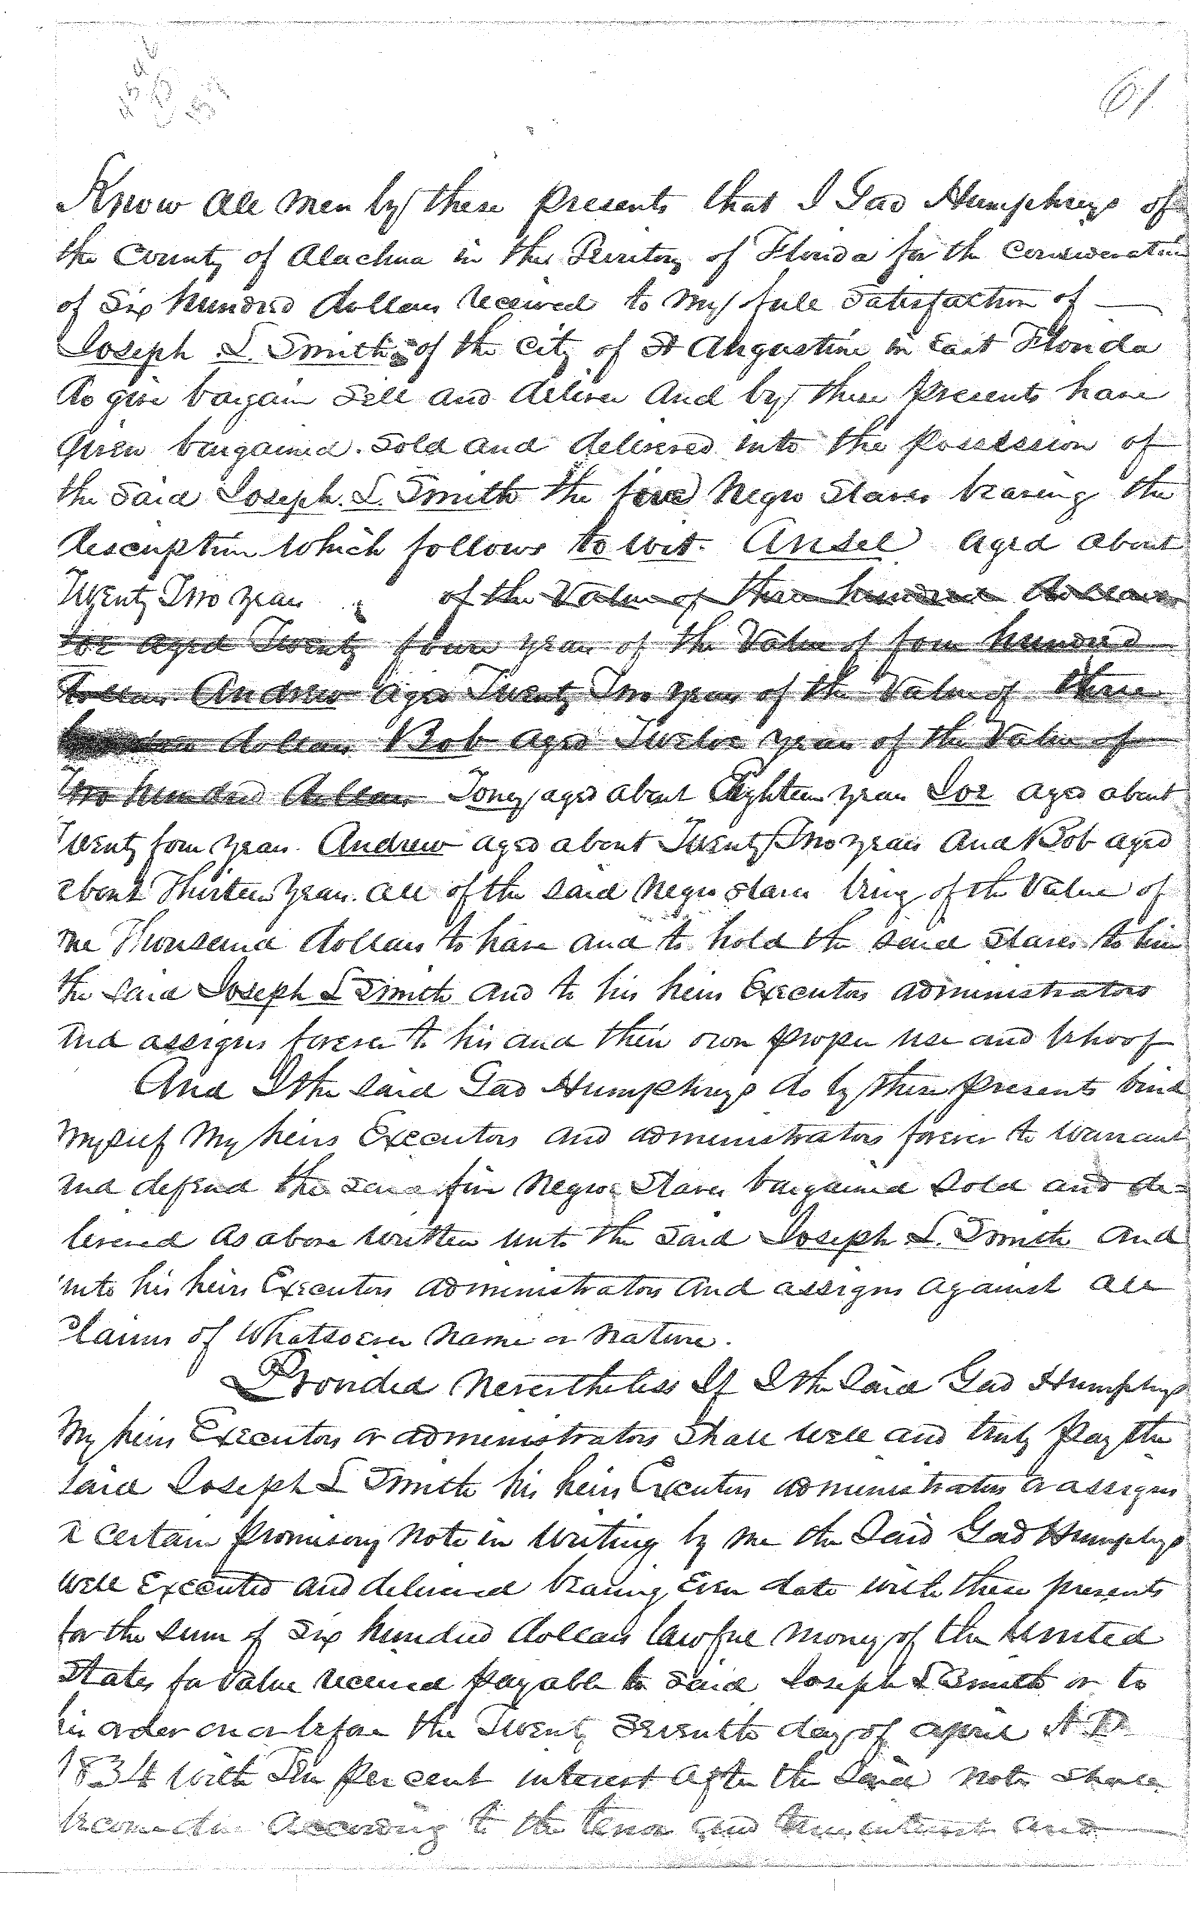 61
Know all men by these presents that I Gad Humphreys of
the County of Alachua in the Territory of Florida for the consideration
of Six hundred dollars received to my full satisfaction of
Joseph L. Smith of the City of St Augustine in East Florida
do give bargain Sell and deliver and by these presents have
given bargained. Sold and delivered into the possession of
the said Joseph. L. Smith the five Negro Slaves bearing the
description which follows to wit. Ansel aged about
Twenty Two years of the Value of three hundred dollars
Joe aged Twenty four years of the Value of four hundred
dollars Andrew aged Twenty Two years of the Value of three
hundred dollars Bob aged Twelve years of the Value of
Two hundred dollars Toney aged about Eighteen years Joe aged about
Twenty four years. Andrew aged about Twenty Two years And Bob aged
about Thirteen years. all of the said Negro Slaves being of the Value of
one Thousand dollars to have and to hold the said Slaves to him
the said Joseph L Smith and to his heirs Executors administrators
and assigns forever to his and their own proper use and behoof
And I the said Gad Humphreys do by these presents bind
myself my heirs Executors and administrators forever to warrant
and defend the said five Negro Slaves bargained Sold and de=
livered as above written unto the said Joseph L. Smith and
unto his heirs Executors administrators and assigns against all
claims of whatsoever name or nature.
Provided Nevertheless If I the said Gad Humphreys
my heirs Executors or administrators shall well and truly pay the
said Joseph L Smith his heirs Executors administrators or assigns
a certain promisory note in writing by me the said Gad Humphreys
well executed and delivered bearing even date with these presents
for the sum of six hundred dollars lawful money of the United
States for value received payable to said Joseph L Smith or to
his order on or before the Twenty Seventh day of april A D
1834 with Ten per cent interest after the said note shall
become due according to the tenor and true intent and